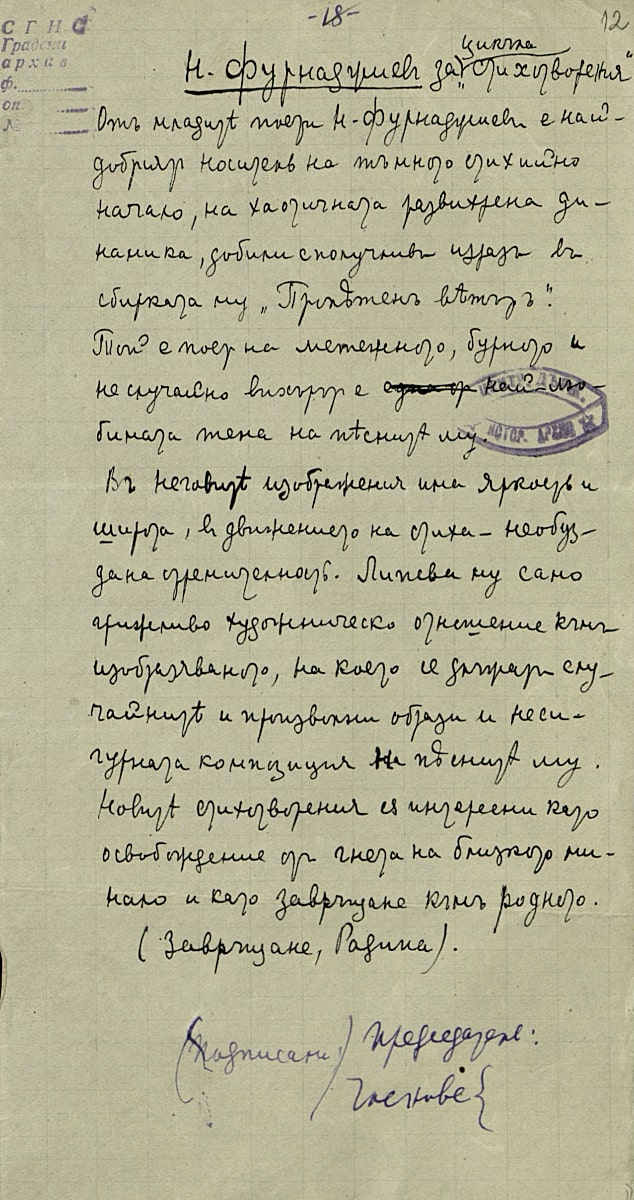 -18-
12
СГНС
Градски
архив
ф.
оп.
№
цикъла
Н. Фурнаджиевъ за „Стихотворения“
Отъ младитѣ поети Н. Фурнаджиевъ е най-
добриятъ носитель на тъмното стихийно
начало, на хаотичната развихрена ди-
намика, добили сполучливъ изразъ въ
сбирката му „Пролѣтенъ вѣтъръ“.
Той е поет на метежното, бурното и
не случайно вихърът е една от най-лю-
бимата тема на пѣснитѣ му.
Въ неговитѣ изображения има яркость и
широта, в движението на стиха – необуз-
дана стремителность. Липсва му само
грижливо художническо отношение към
изобразяваното, на което се дължатъ слу-
чайнитѣ и произволни образи и неси-
гурната композиция на пѣснитѣ му.
Новитѣ стихотворения сѫ интересни като
освобождение отъ гнета на близкото ми-
нало и като завръщане към родното.
(Завръщане, Родина).
(Подписали) Председатель:
Членове {